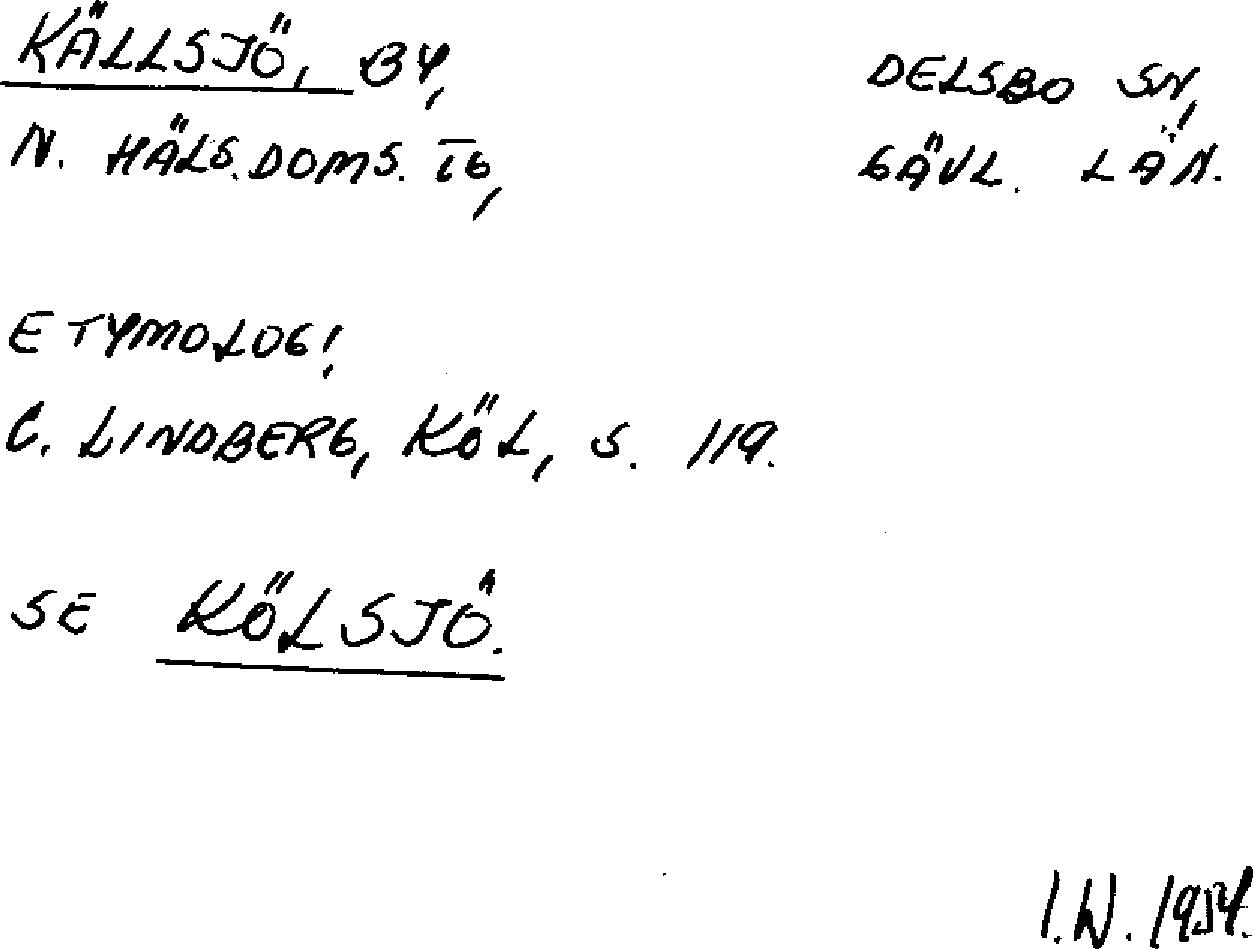 KÄLLSJÖ, BY, DELSBO SN,
N. HÄLS. DOMS. TG, GÄVL. LÄN.
ETYMOLOGI
C. LINDBERG, KÖL, S. 119.
SE KÖLSJÖ.
I.W. 1954.